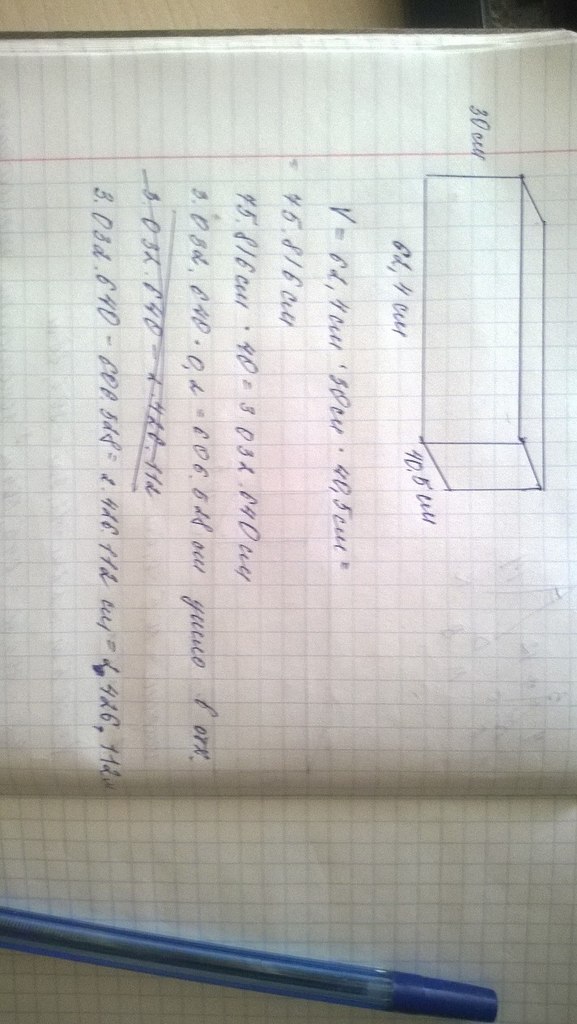 30 см
62,4 см
40,5 см
V = 62,4 см · 30 см · 40,5 см =
= 75.816 см
75.816 см · 40 = 3 032.640 см
3.032.640 · 0,2 = 606.528 см ушло в отх.
3.032.640 = 2.426.112
3.032.640 - 606 528 = 2.426 112 см = 2,426,112м